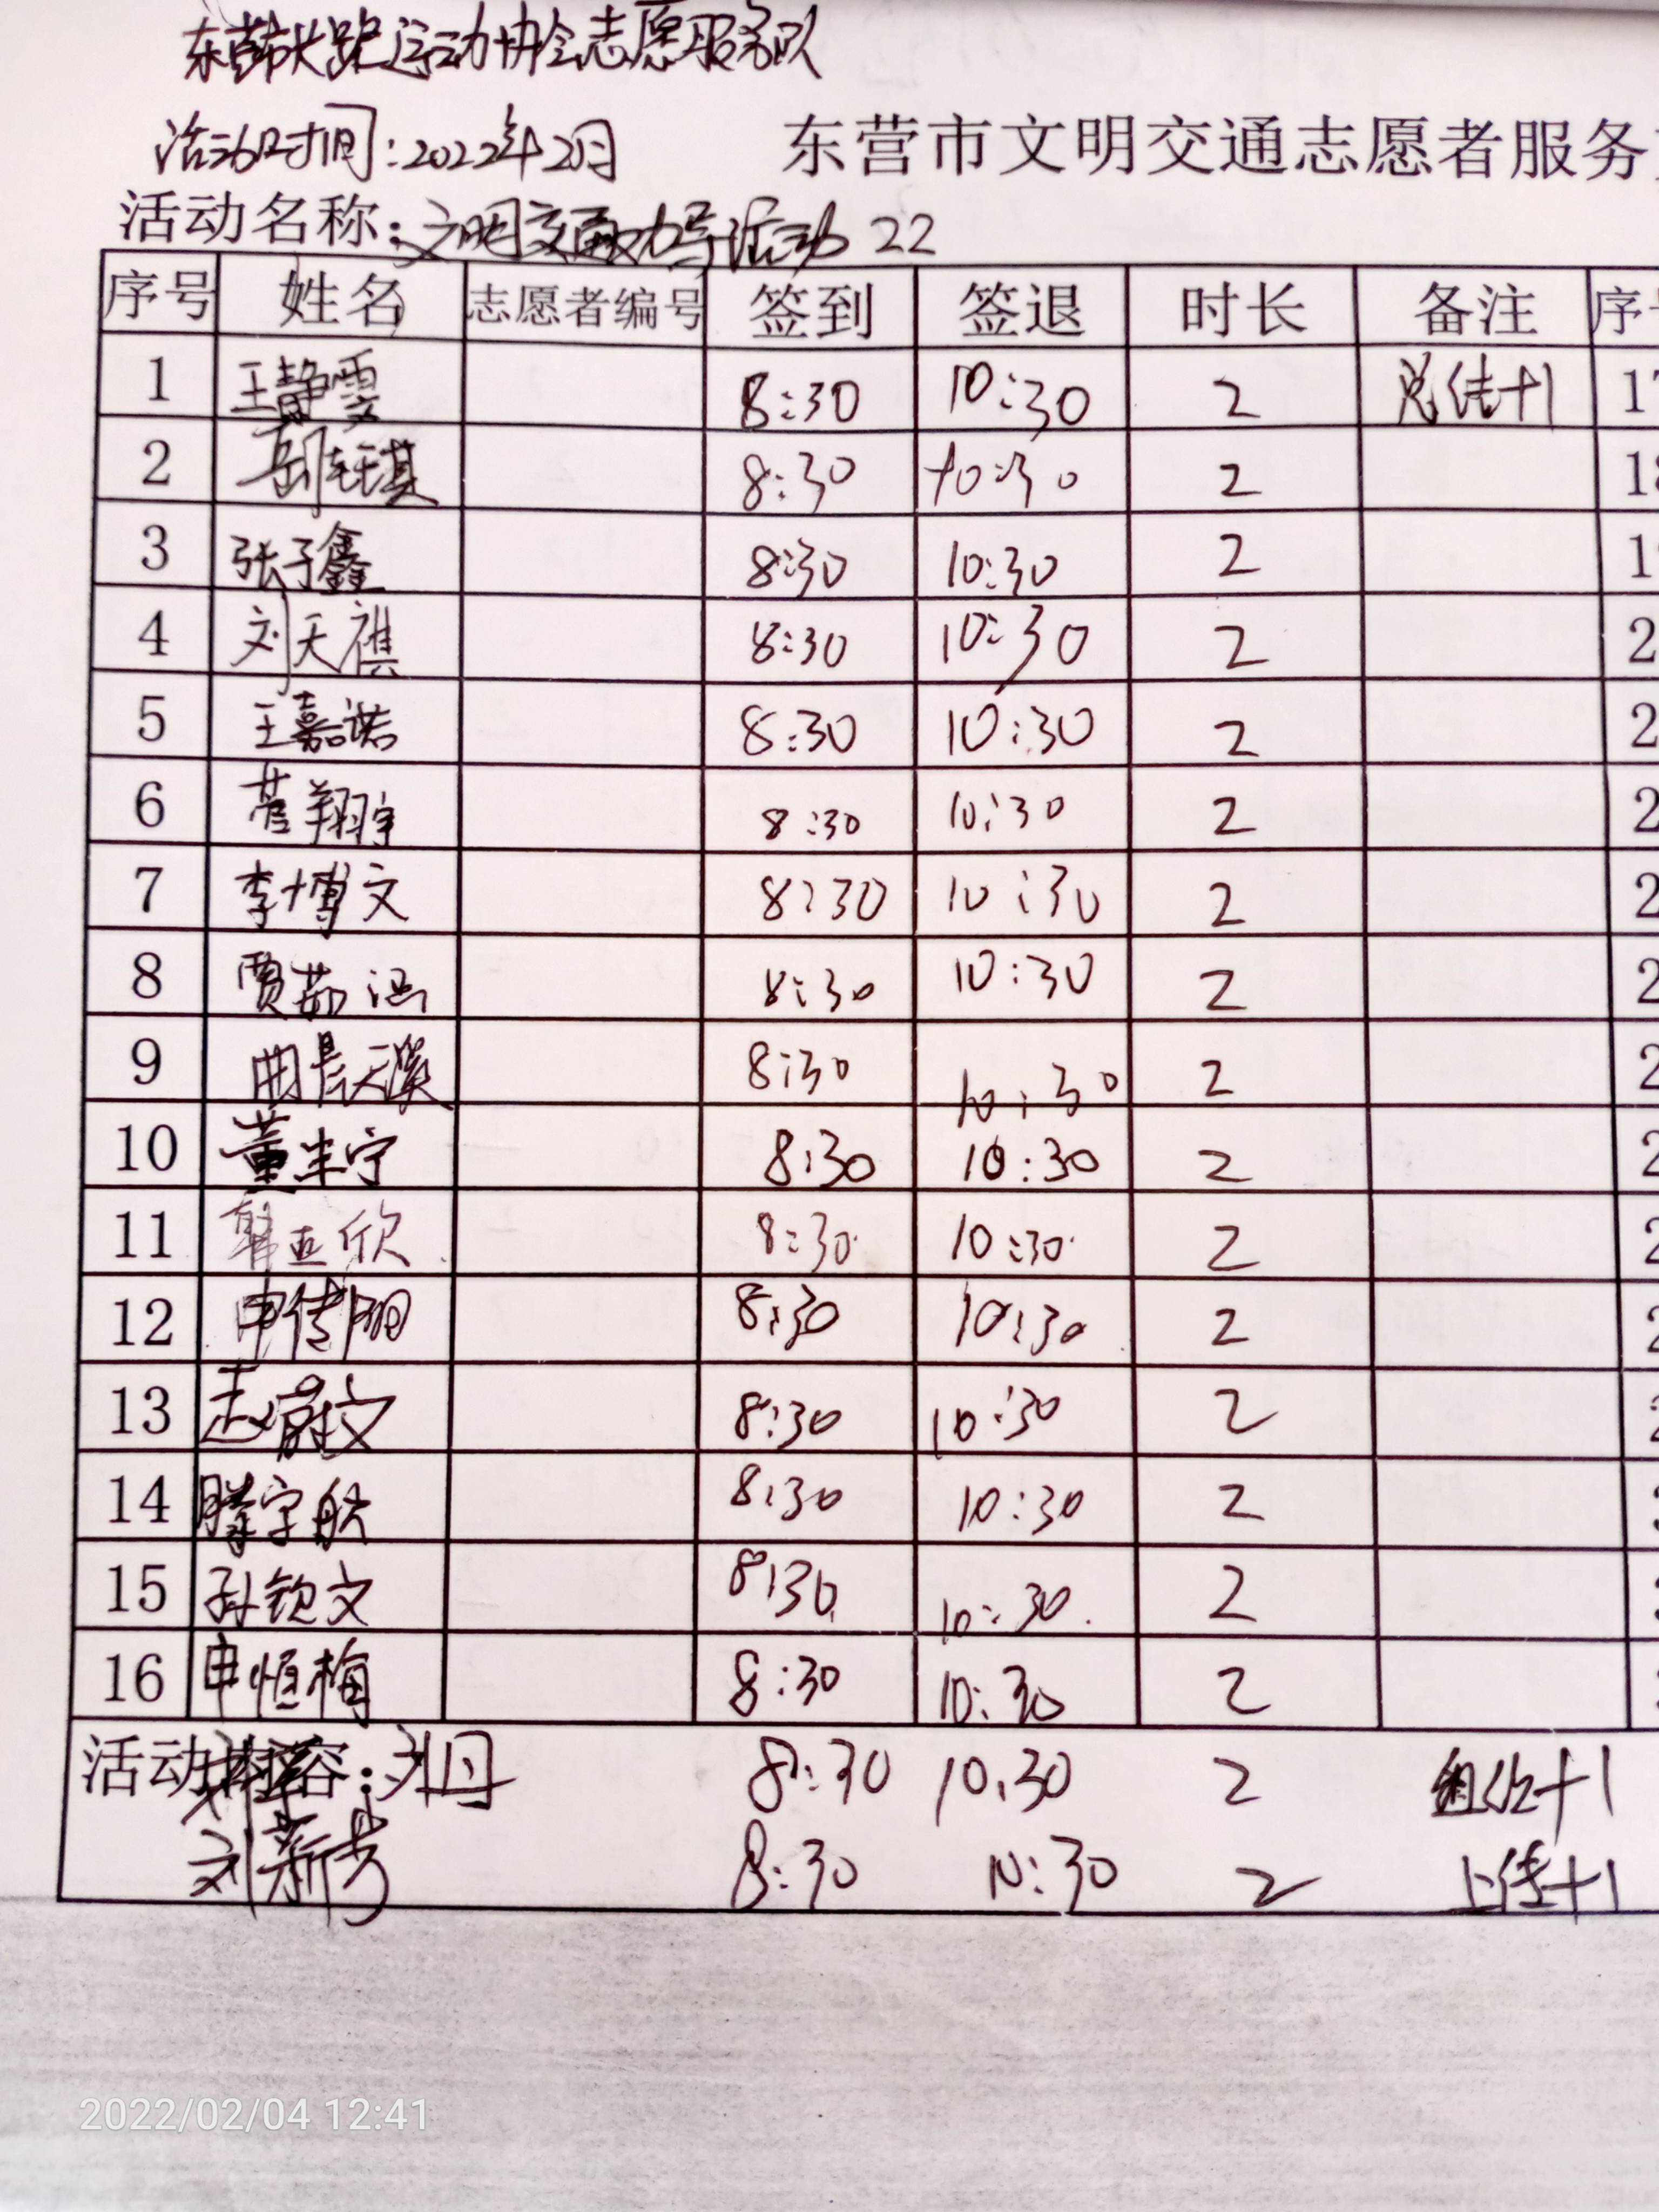 东营市长跑运动协会志愿服务队
活动时间:2022年2月
东营市文明交通志愿者服务
活动名称:文明交通劝导活动 22
序号 姓名 志愿者编号 签到 签退 时长 备注 序号
1 王静雯 8:30 10:30 2 总结+1
2 8:30 10:30 2
3 张子鑫 8:30 10:30 2
4 刘天祺 8:30 10:30 2
5 王嘉诺 8:30 10:30 2
6 翔宇 8:30 10:30 2
7 李博文 8:30 10:30 2
8 贾茹涵 8:30 10:30 2
9 曲 溪 8:30 10:30 2
10 董半宁 8:30 10:30 2
11 韩 欣 8:30 10:30 2
12 申传 8:30 10:30 2
13 赵蔚文 8:30 10:30 2
14 滕宇航 8:30 10:30 2
15 孙钦文 8:30 10:30 2
16 申恒梅 8:30 10:30 2
活动内容:刘丹 8:30 10:30 2 组织+1
刘新芳 8:30 10:30 2 上传+1
2022/02/04 12:41